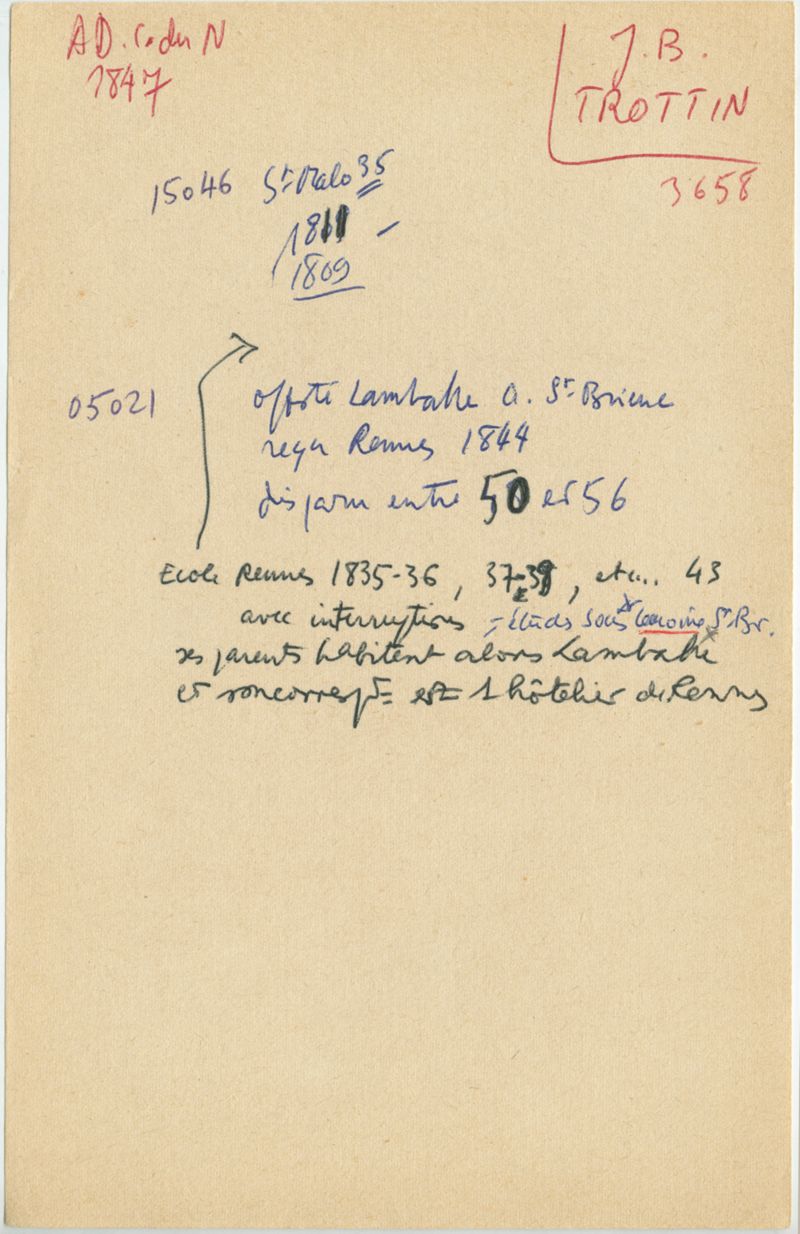 AD. C. du N
1847
J. B.
TROTTIN
3658
15046 St Malo 35
1811 -
1809
05021
offté Lamballe a. St Brieuc
reçu Rennes 1844
disparu entre 50 et 56
Ecole Rennes 1835-36, 37-38, etc... 43
avec interruptions - études sous Lemoine St. Br.
ses parents habitent alors Lamballe
et son corresp.t est 1 hôtelier de Rennes